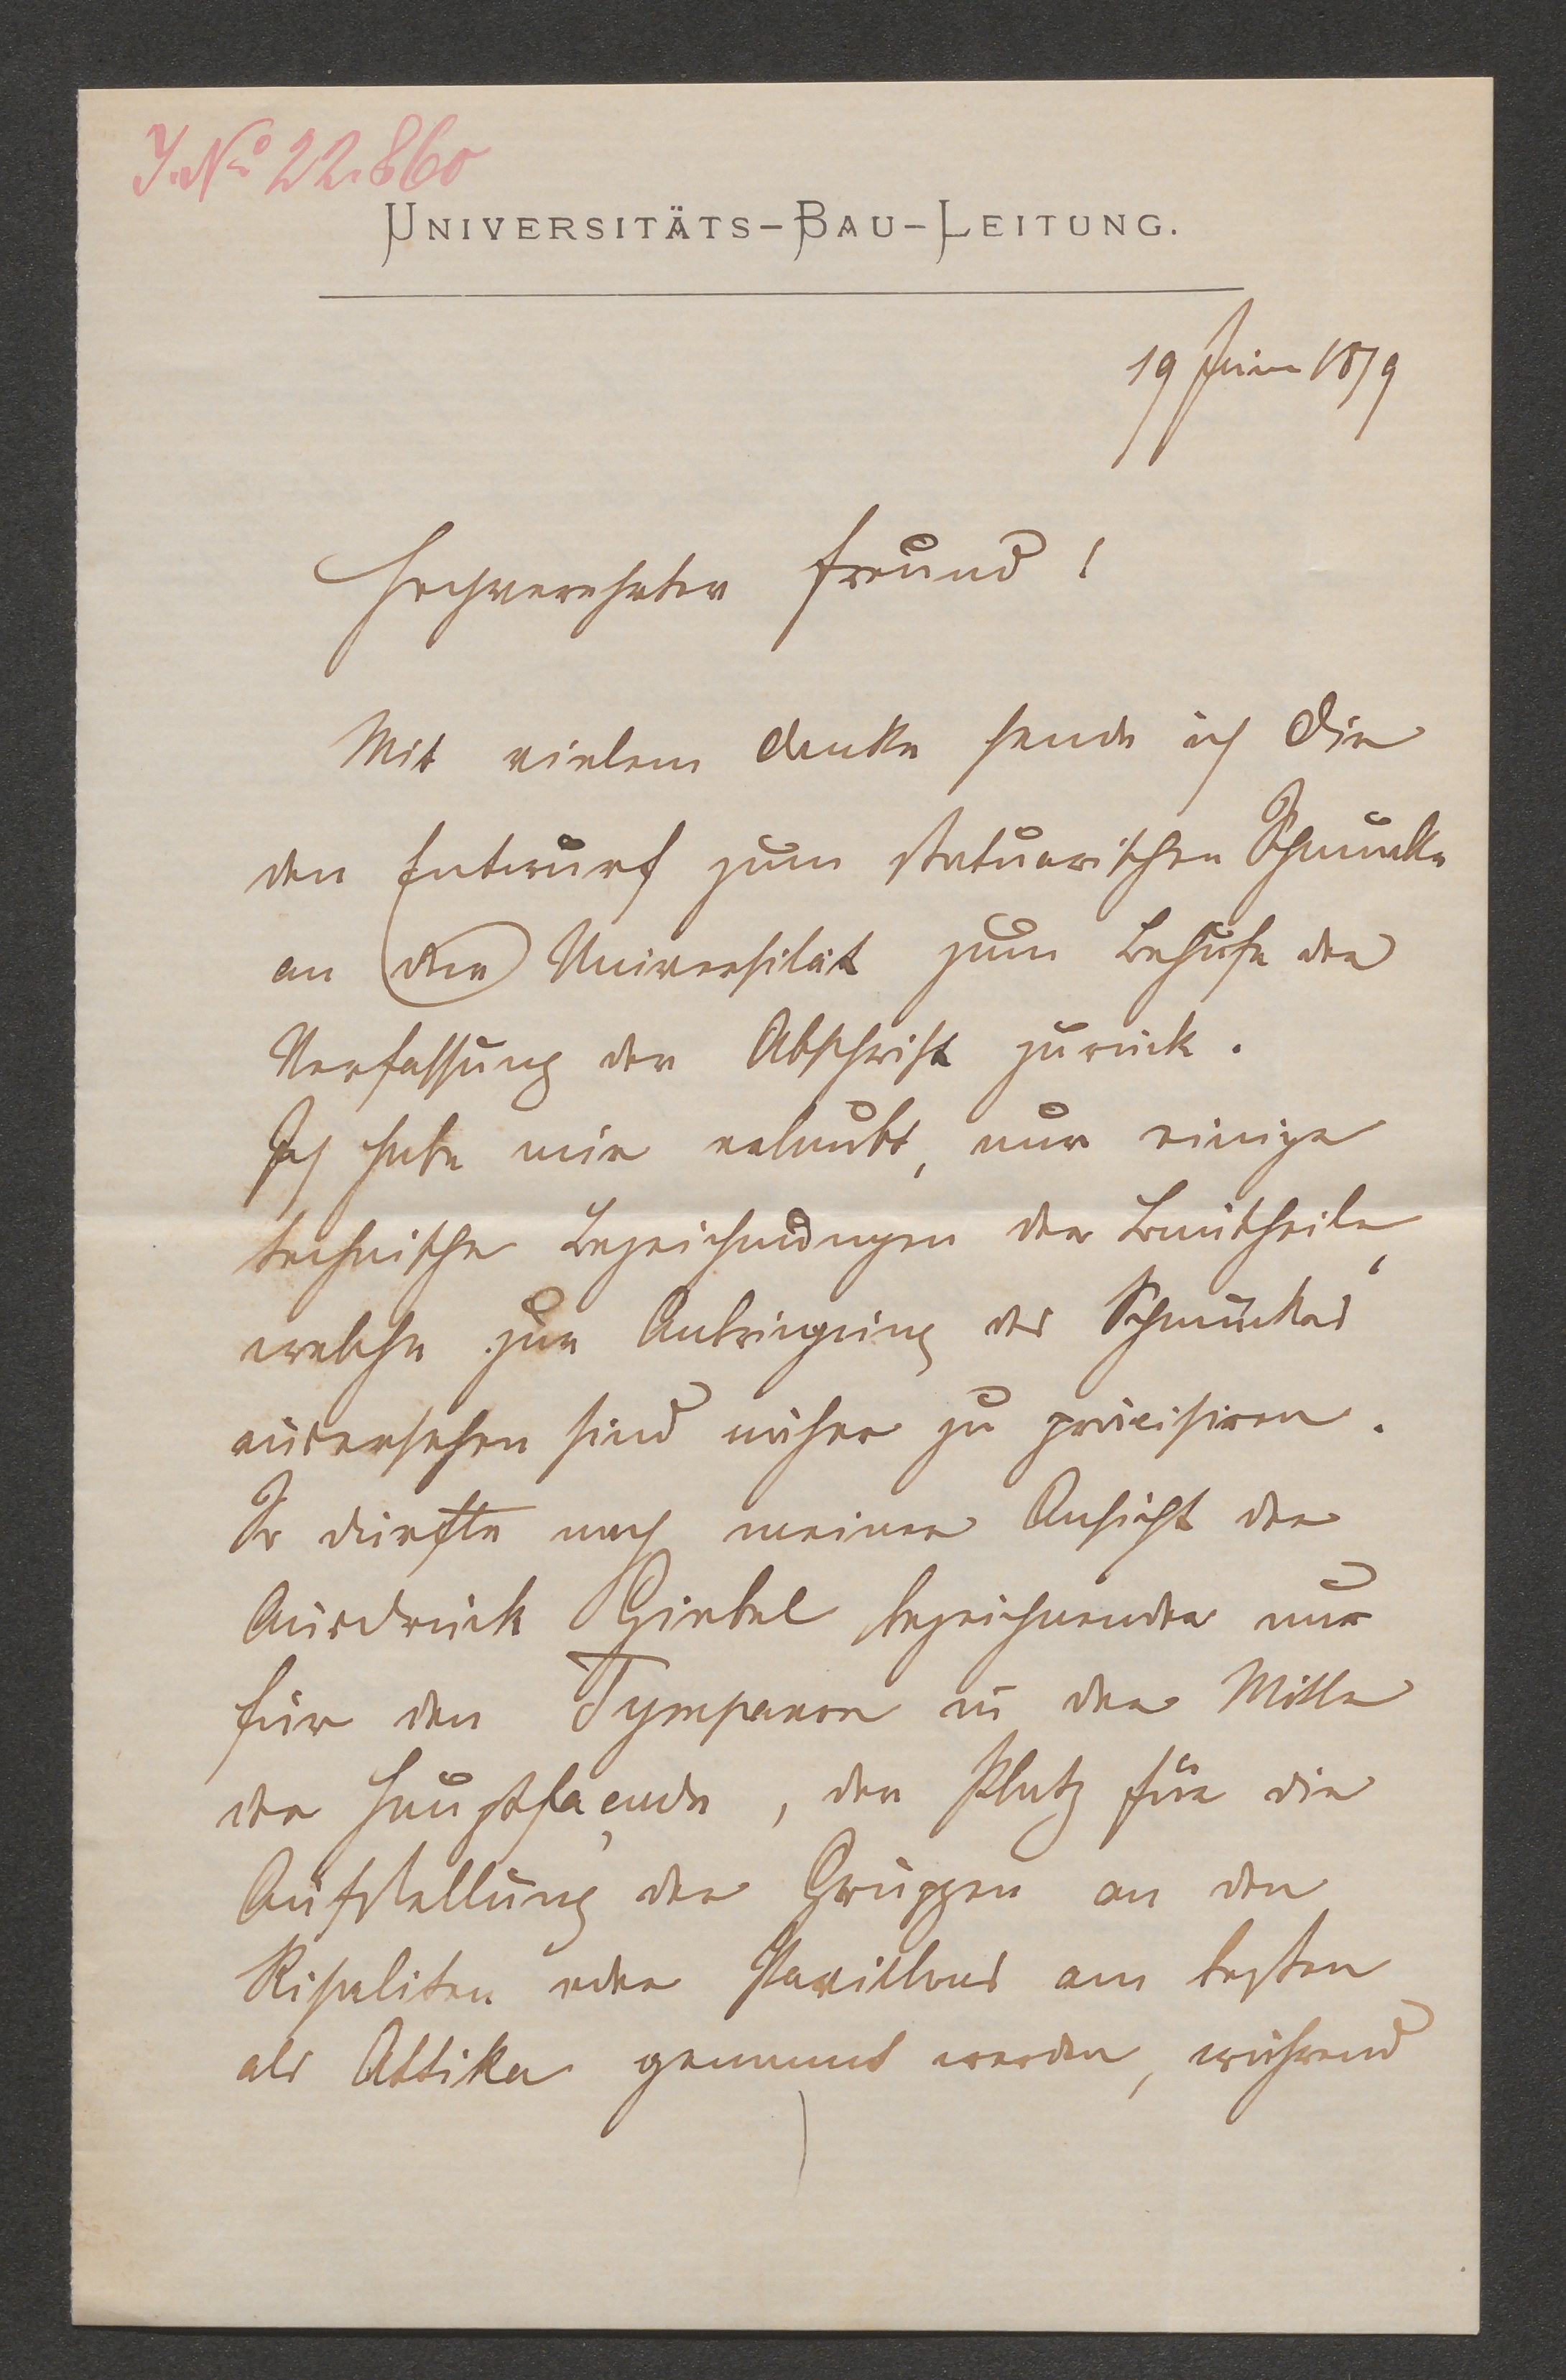 J. No 22.860
UNIVERSITÄTS-BAU-LEITUNG.
19 Juni 1879
Hochverehrter Freund!
Mit vielem Danke sende ich Dir
den Entwurf zum statuarischen Schmucke
an der Universität zum Behufe der
Verfassung der Abschrift zurück.
Ich habe mir erlaubt, nur einige
technische Bezeichnungen der Bautheile,
welche zur Anbringung des Schmuckes
ausersehen sind näher zu präcisiren.
So dürfte nach meiner Ansicht der
Ausdruck Giebel bezeichnender nur
für den Tympanon in der Mitte
der Hauptfaçade, der Platz für die
Aufstellung der Gruppen an den
Risaliten oder Pavillons am besten
als Attika genannt werden, während